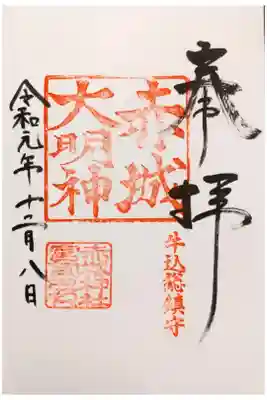 奉拝
赤城
大明神
牛込総鎮守
令和元年十二月八日